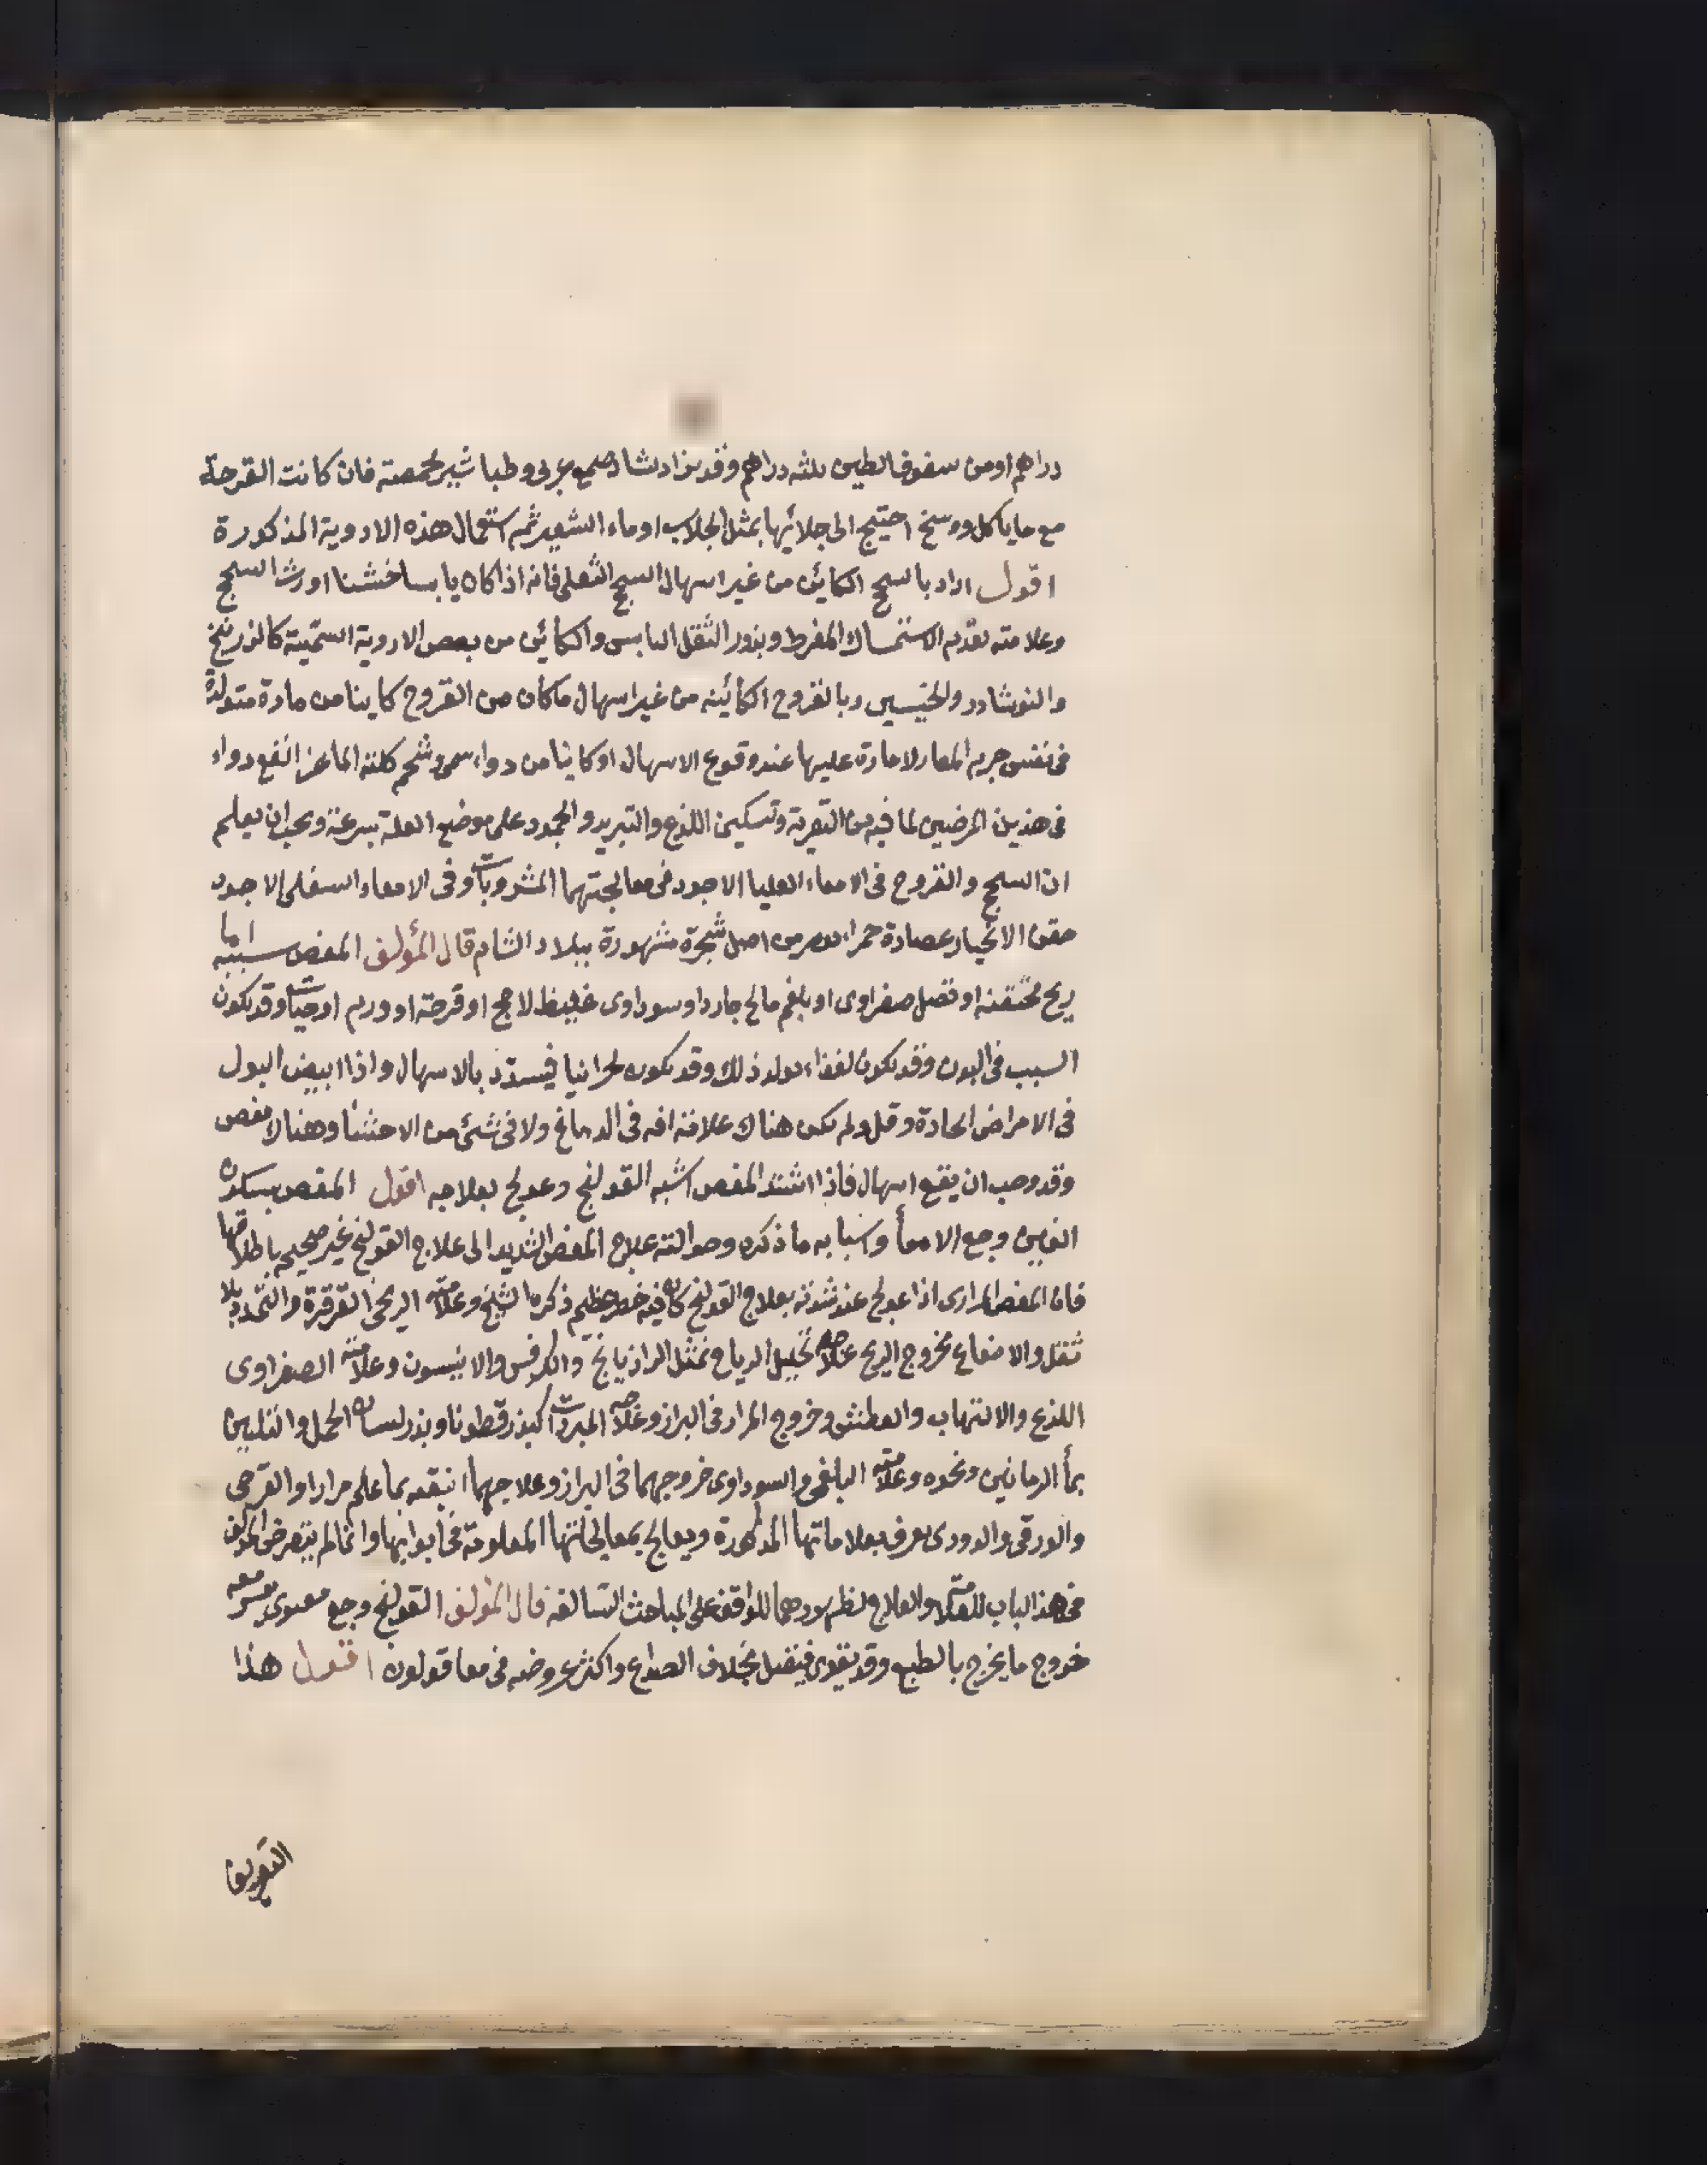 دراهم اومن سفوف الطين ثلثه دراهم وقد يزاد نشا وصمغ عربى وطباشير محمصة فان كانت القرحة
مع ما ياكل ووسخ احتيج الى جلائها بمثل الجلاب او ماء الشعير ثم استعمال هذه الادوية المذكورة
اقول اراد بالسحج الكائن من غير اسهال السحج الثفلى فانه اذا كان يابسا خشنا اورث السحج
وعلامته تقدم الاستمساك المفرط وبزور الثفل اليابس والكائن من بعض الادوية السمية كالزرنيخ
والنوشادر والجبسين وبالقروح الكائنه من غير اسهال ما كان من القروح كاينا من مادة متولدة
فى نفس جرم المعا لا مارة عليها عند وقوع الاسهال او كاينا من دواء سمى وشحم كلية الماعز انفع دواء
فى هذين المرضين لما فيه من التغرية وتسكين اللذع والتبريد والجمود على موضع العلة بسرعة ويجب ان يعلم
ان السحج والقروح فى الامعاء العليا الاجود فى معالجتهما المشروبات وفى الامعاء السفلى الاجود
حقن الانجبار عصارة حمراء من اصل شجرة مشهورة ببلاد الشام قال المؤلف المغص سببه اما
ريح محتقنة او فضل صفراوى او بلغم مالح حار او سوداوى غليظ لاحج او قرحة او ورم او حيات وقد يكون
السبب فى البدن وقد يكون لغذاء يولد ذلك وقد يكون بحرانيا فيستدل بالاسهال واذا ابيض البول
فى الامراض الحادة وقل ولم يكن هناك علامة افه فى الدماغ ولا فى شئ من الاحشا وهناك مغص
وقد وجب ان يقع اسهال فاذا اشتد المغص اشبه القولنج وعولج بعلاجه اقول المغص بسكون
الغين وجع الامعأ واسبابه ما ذكره وحوالته علاج المغص الشديد الى علاج القولنج غير صحيحه باطلاقها
فان المغص المرارى اذا عولج عند شدته بعلاج القولنج كان فيه خطر عظيم ذكره الشيخ وعلامة الريحى القرقرة والتمدد بلا
ثقل والانتفاع بخروج الريح علاجه تحليل الرياح بمثل الرازيانج والكرفس والانيسون وعلامة الصفراوى
اللذع والالتهاب والعطش وخروج المرار فى البراز وعلاجه المبردات كبزر قطونا وبذر لسان الحمل والتليين
بمأ الرمانين ونحوه وعلامة البلغمى والسوداوى خروجهما فى البراز وعلاجهما بما علم مرارا والقرحى
والورقى والدودى يعرف بعلاماتها المذكورة ويعالج بمعالجاتها المعلومة فى ابوابها وانما لم يتعرض المؤلف
فى هذا الباب للعلامة والعلاج لظهورهما للواقف على المباحث السالفة قال المؤلف القولنج وجع معوى يعسر معه
خروج ما يخرج بالطبع وقد يقوى فيقتل بخلاف الصداع واكثر عروضه فى معا قولون اقول هذا
التعريف